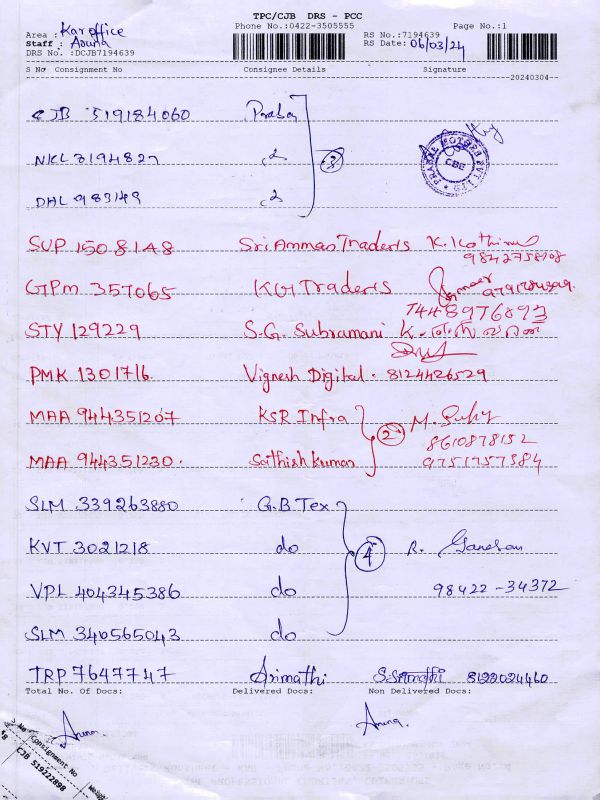 TPC/CJB DRS - PCC
Phone No.:0422-3505555 Page No.:1
Area : Karoffice RS No.:7194639
Staff : Aruna RS Date: 06/03/24
DRS No. :DCJB7194639
S No Consignment No Consignee Details Signature
20240304
CJB 519184060
NKL 3194827
3
DHL 983149
SUP 1508148 Sri Amman Traders
GPM 357065 KG Traders
STY 129229 S.G. Subramani
PMK 1301716. Vignesh Digital. 8124426529
MAA 944351207 KSR Infra
2
MAA 944351230. Sathish kumar
9751757384
SLM 339263880 G.B Tex
KVT 3021218 do 4 R. Ganesan
VPL 404345386 do 98422-34372
SLM 340565043 do
TRP 7647747 Srimathi 8122024460
Total No. Of Docs: Delivered Docs: Non Delivered Docs:
Aruna. Aruna.
Consignment No
CJB 519222898